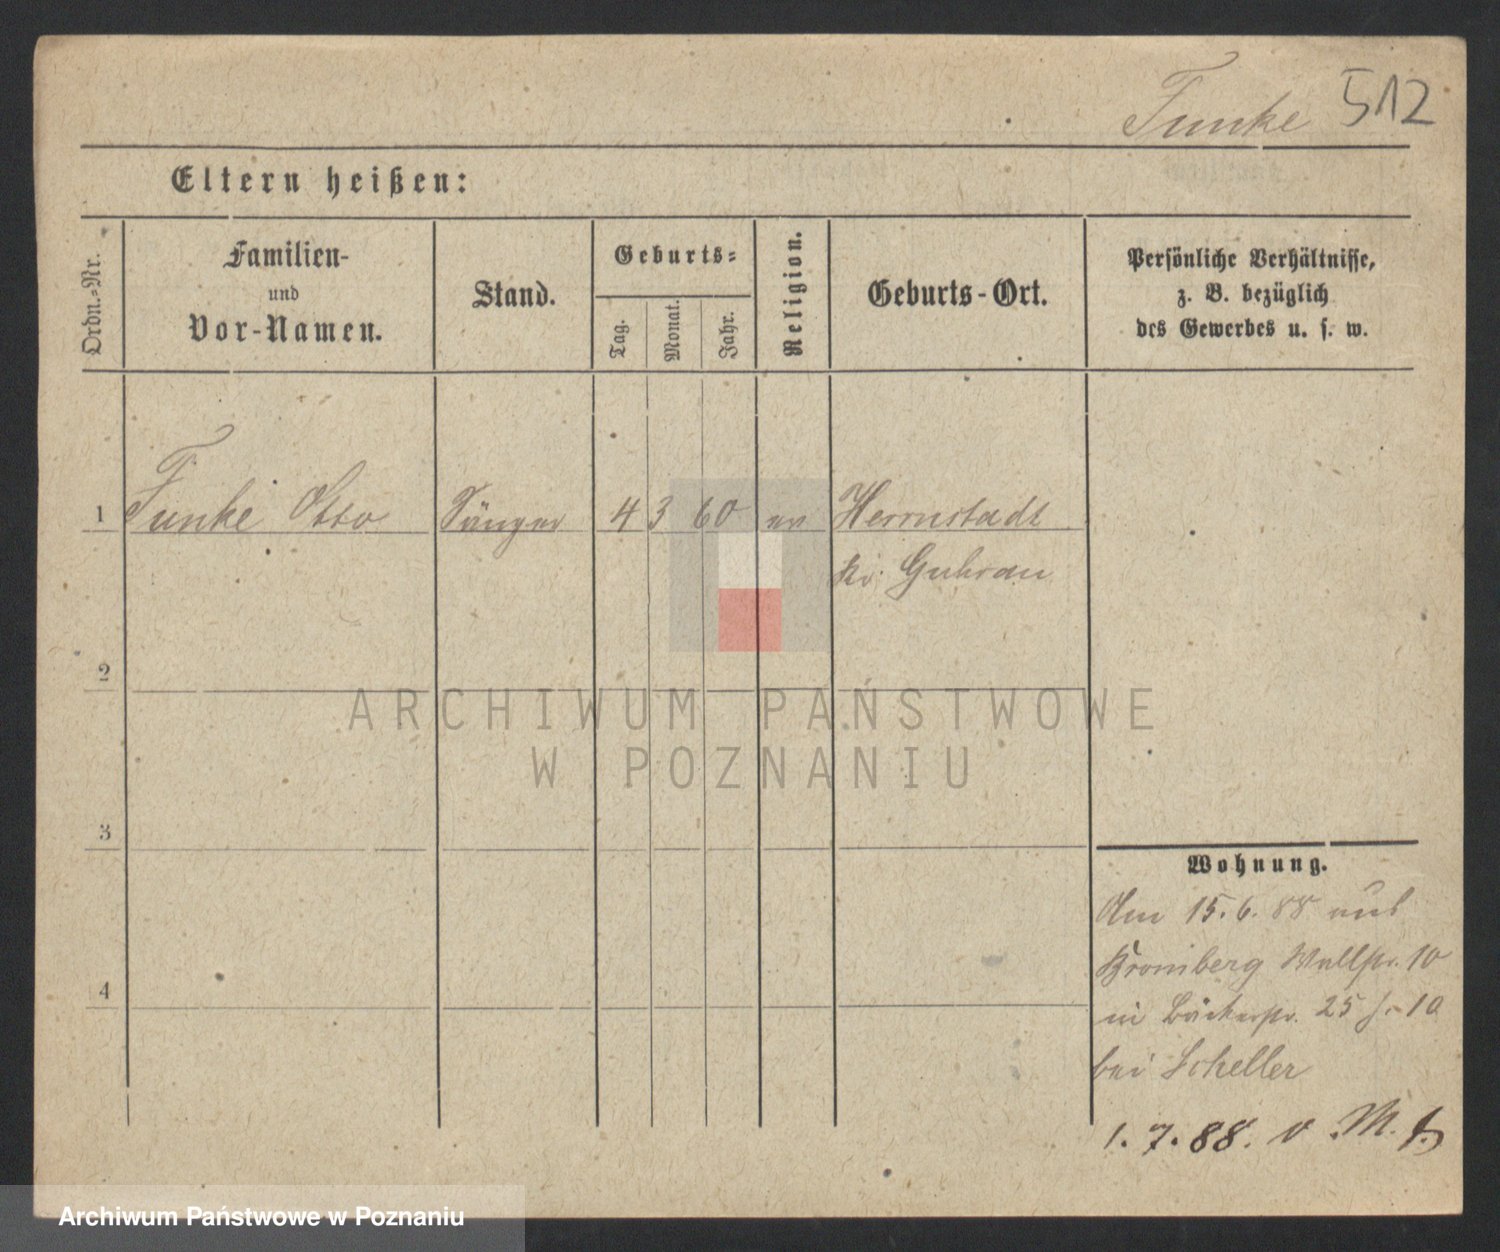 Funke 512
Eltern heißen:
Ordn.-Nr.
Familien-
und
Vor-Namen.
Stand.
Geburts-
Tag.
Monat.
Jahr.
Religion.
Geburts-Ort.
Persönliche Verhältnisse,
z. B. bezüglich
des Gewerbes u. s. w.
1 Funke Otto Sänger 4 3 60 ev Herrnstadt
Kr. Guhrau
2
3
4
Wohnung.
Am 15.6.88 aus
Bromberg Wallstr. 10
in Bäckerstr. 25 10
bei Scheller
1.7.88. v. M.
ARCHIWUM PAŃSTWOWE
W POZNANIU
Archiwum Państwowe w Poznaniu